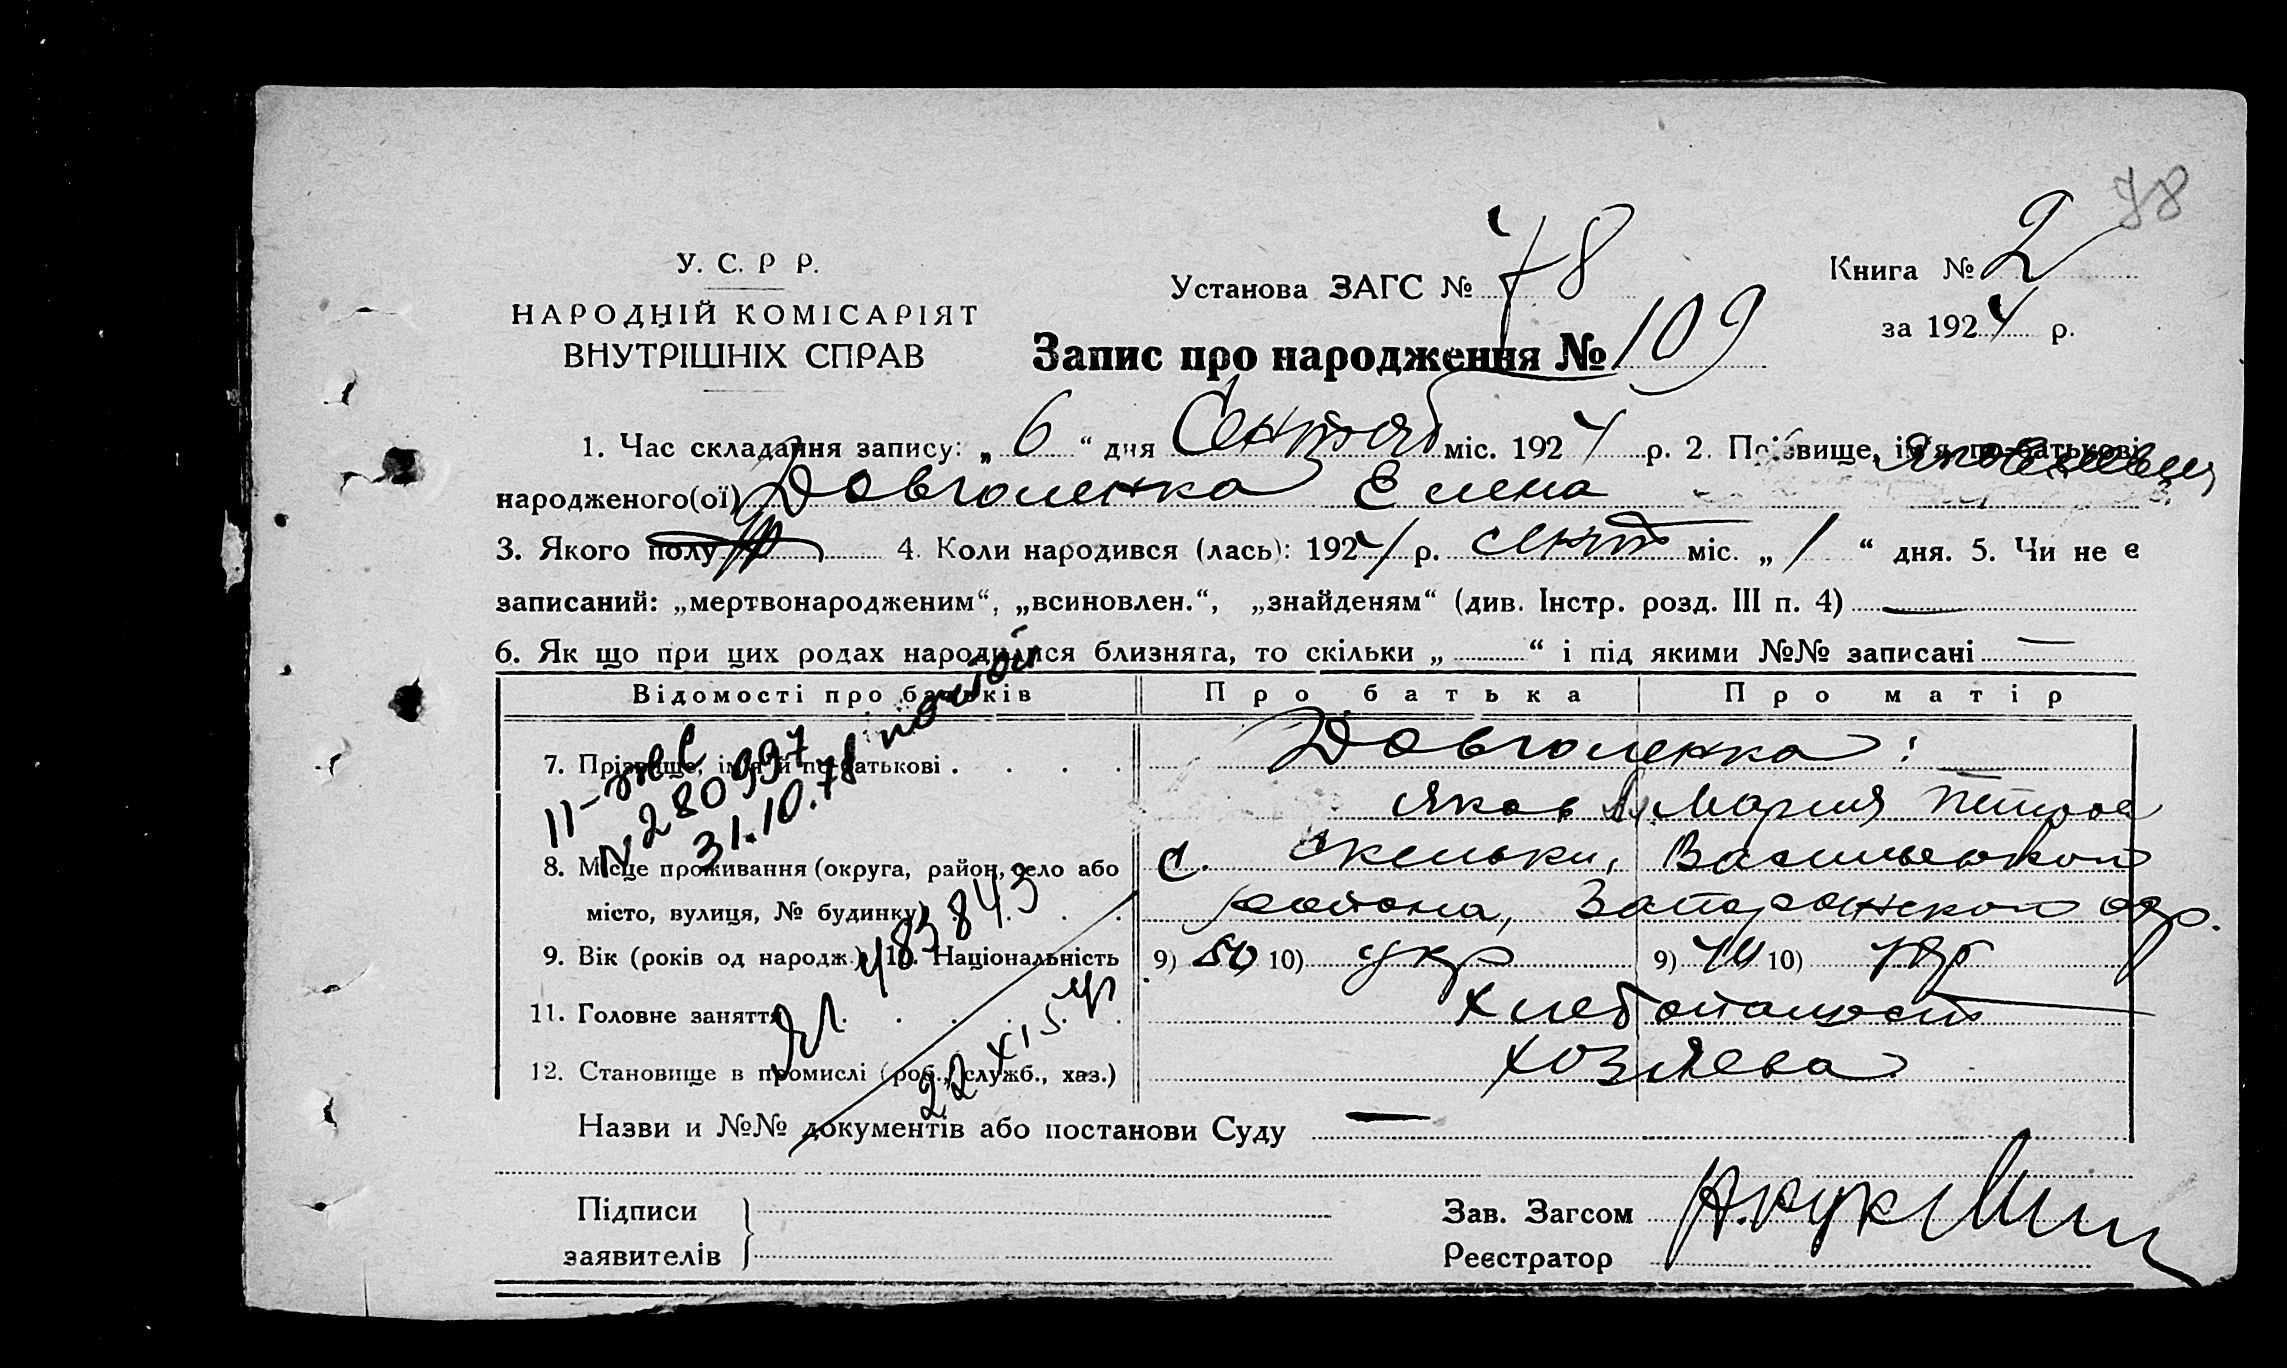 78
У. С. Р Р.
Установа ЗАГС № 78
Книга № 2
НАРОДНІЙ КОМІСАРІЯТ
за 1924 р.
ВНУТРІШНІХ СПРАВ
Запис про народження № 109
1. Час складання запису: „ 6 “ дня Сентяб міс. 1924 р. 2. Прізвище, ім'я, по-батькові
народженого(ої) Довголенко Елена Яковлевна
3. Якого полу 4. Коли народився (лась): 1924 р. сент міс. „ 1 “ дня. 5. Чи не є
записаний: „мертвонародженим“, „всиновлен.“, „знайденям“ (див. Інстр. розд. III п. 4)
6. Як що при цих родах народилися близнята, то скільки „ “ і під якими №№ записані
Відомості про батьків Про батька Про матір
7. Прізвище, ім'я й по-батькові . . . . Довголенко:
Яков Мария Петров
8. Місце проживання (округа, район, село або с. Скельки, Васильевского
місто, вулиця, № будинку) . . . района, Запорожского окр.
9. Вік (років од народж.) 10. Національність 9) 50 10) укр 9) 40 10) укр
11. Головне заняття . . . . . . Хлебопашест
12. Становище в промислі (роб., служб., хаз.) хозяева
Назви и №№ документів або постанови Суду —
Підписи
заявителів
Зав. Загсом
Реєстратор
N 280997
31.10.78
483843
22 XI 5